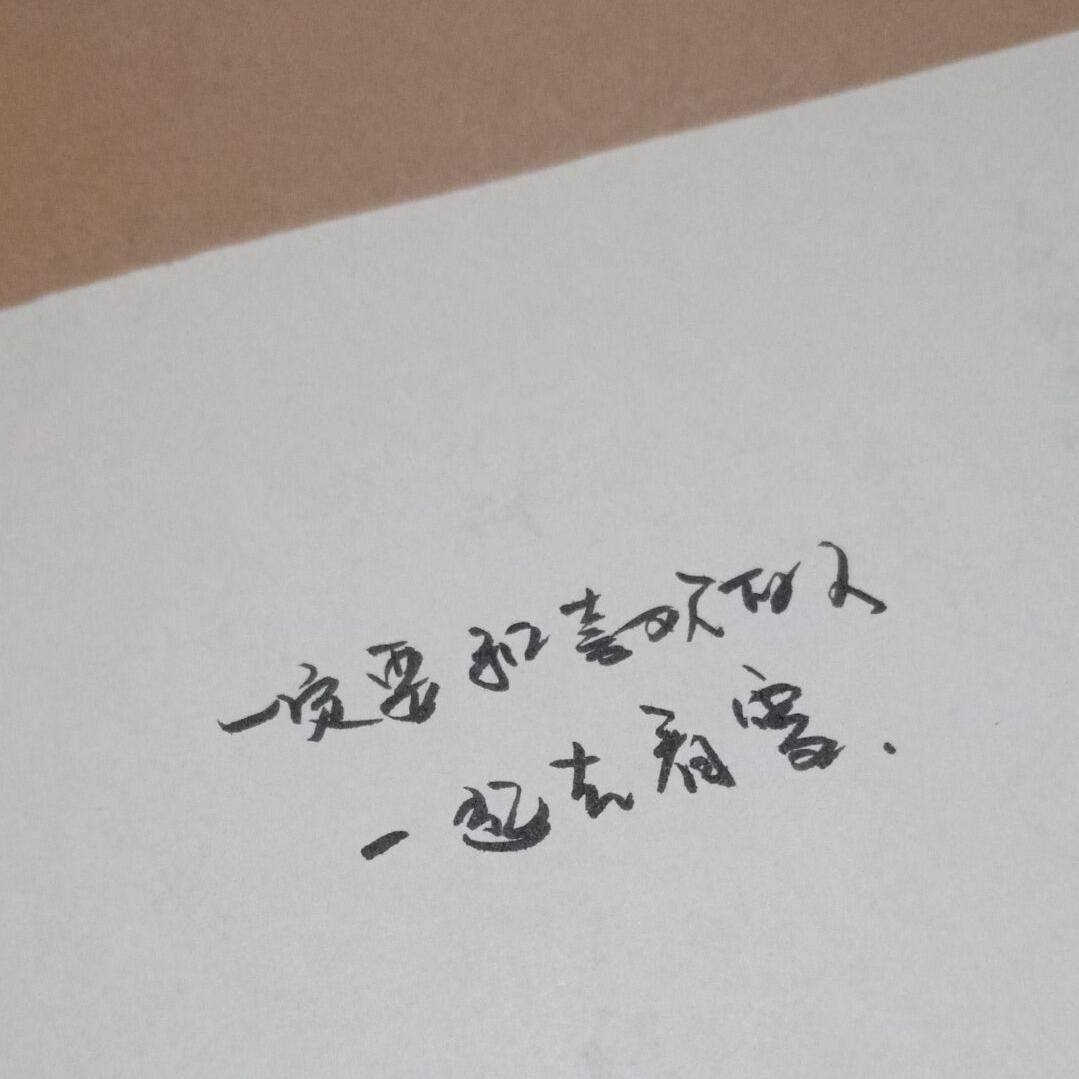 一定要和喜欢的人
一起去看雪.